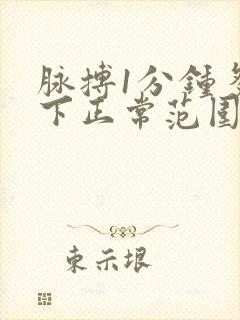 脉搏1分鍾多
下正常范围
束示垠